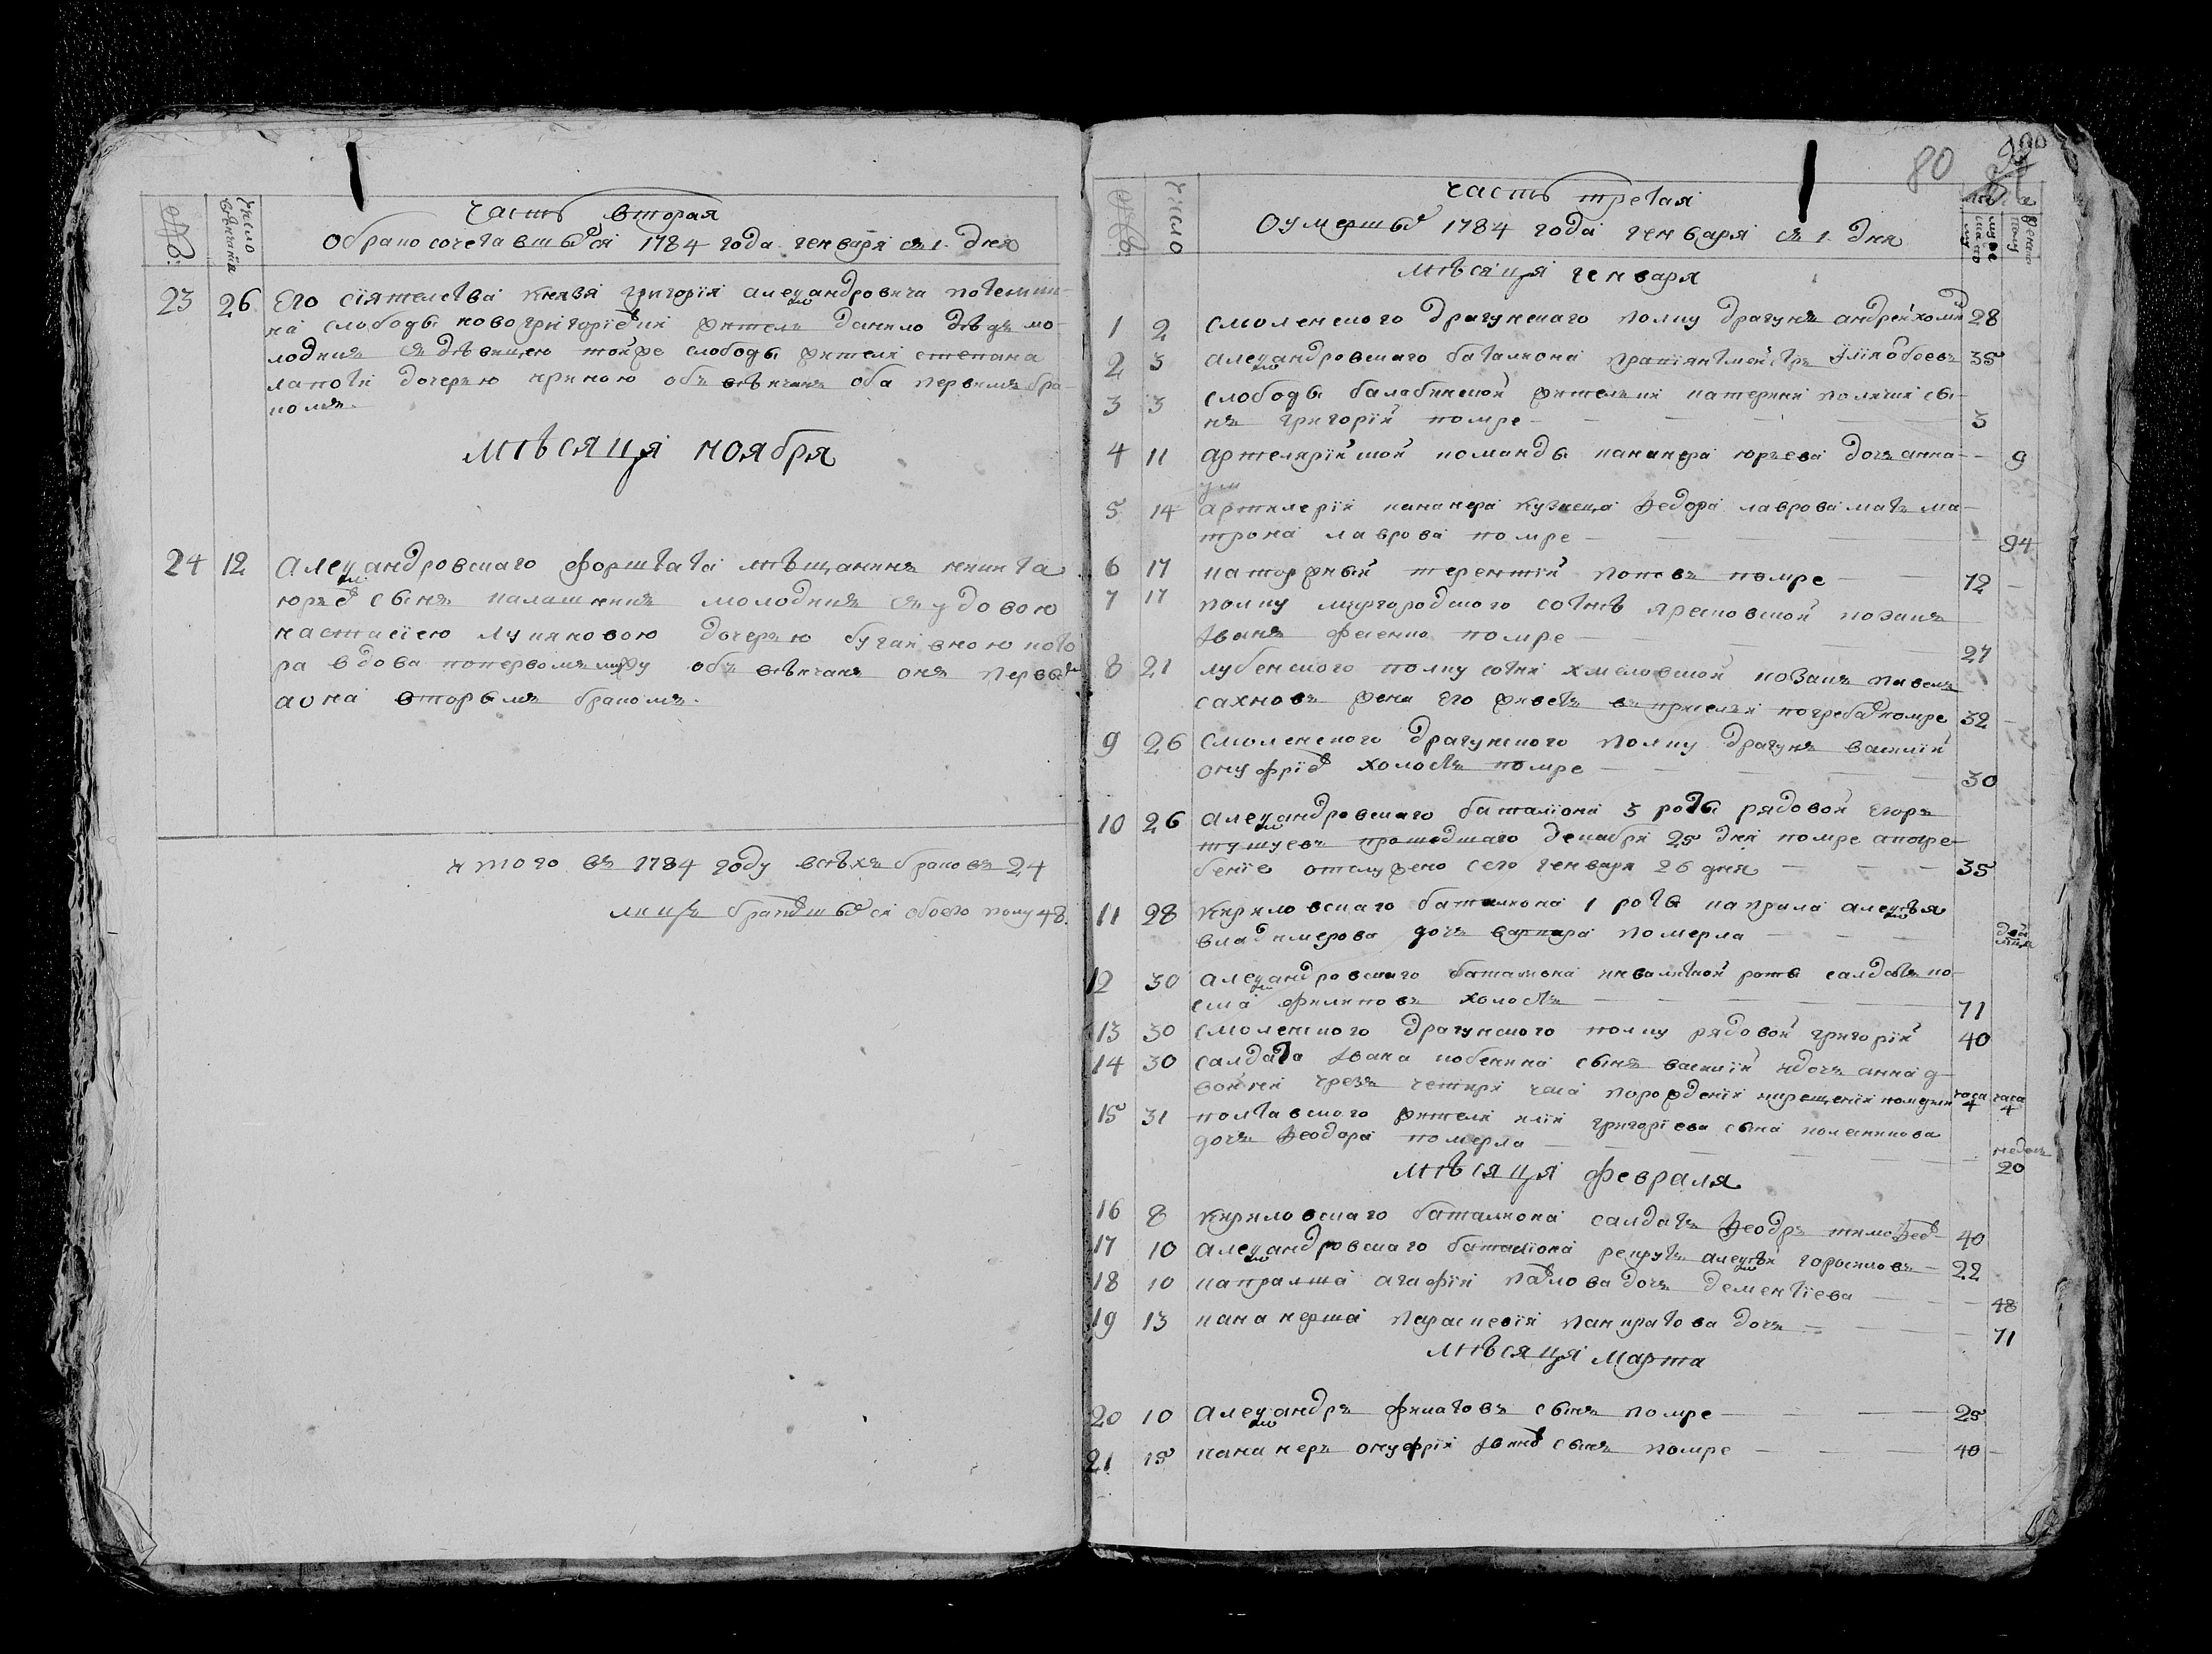 часть вторая
О бракосочетавшыхся 1784 года генваря съ 1. дня
№
число венчания
23 26 Его сіятелства князя григорія александровича потемки-
на слободы новогригоріевки жителъ данило дѣдъ мо-
лодикъ съ дѣвицею тойже слободы жителя степана
лапотя дочерью ириною обвѣнчанъ оба первымъ бра-
комъ.
мѣсяца ноября
24 12 александровскаго форштата мѣщанинъ никита
юрьевъ сынъ калашникъ молодикъ съ удовою
настасіею лукяновою дочерью бугаивною кото
ра вдова попервомъ мужу обвѣнчанъ онъ первымъ
а она вторымъ бракомъ.
итого въ 1784 году всѣхъ браковъ 24
лицъ бравшыхся обоего полу 48.
80
часть третая
О умершыхъ 1784 года генваря съ 1. дня
№
число
лѣта
мужескаго
женскому
мѣсяца генваря
1 2 смоленского драгунскаго полку драгунъ андрей хомы 28
2 3 александровскаго баталиона 35
3 3 слободы балабинской жителки катерини поляки сы-
нъ григорій помре 3
4 11 артелярійской команды канонера юрьева дочь анна 9
5 14 артилеріи канонера кузнеца ѳедора лаврова мать ма-
трона лаврова помре 94
6 17 каторжный терентій поповъ помре 72
7 17 полку миргородского сотнѣ яресковской козакъ
іванъ фесенко помре 27
8 21 лубенского полку сотни хмеловской козакъ павелъ
сахновъ жена его живетъ помре 32
9 26 смоленского драгунского полку драгунъ василій
онуфріевъ холостъ помре 30
10 26 александровскаго баталіона 3 роты рядовой егоръ
прошедшаго декабря 25 дня помре а погре-
беніе отслужено сего генваря 26 дня 35
11 28 кириловскаго баталиона 1 роты капрала алексѣя
владимерова дочь варвара померла
12 30 александровскаго баталиона инвалитной роты салдатъ ко-
сма филиповъ холостъ 71
13 30 смоленского драгунского полку рядовой григорій 40
14 30 салдата івана кобекина сынъ василій и дочь анна д-
войни чрезъ четири часа порожденіи и крещеніи померли часа 4 часа 4
15 31 полтавского жителя иліи григоріева сына колесникова
дочь ѳеодора померла недель 20
мѣсяца февраля
16 8 кириловскаго баталиона салдатъ ѳеодръ тимоѳеевъ 40
17 10 александровскаго баталіона рекрутъ алексѣй 22
18 10 капралша агафія павлова дочь дементіева 48
19 13 канонерша параскевія панкратова дочь 71
мѣсяца марта
20 10 александръ филатовъ сынъ помре 25
21 15 канонеръ онуфрій івановъ сынъ помре 40